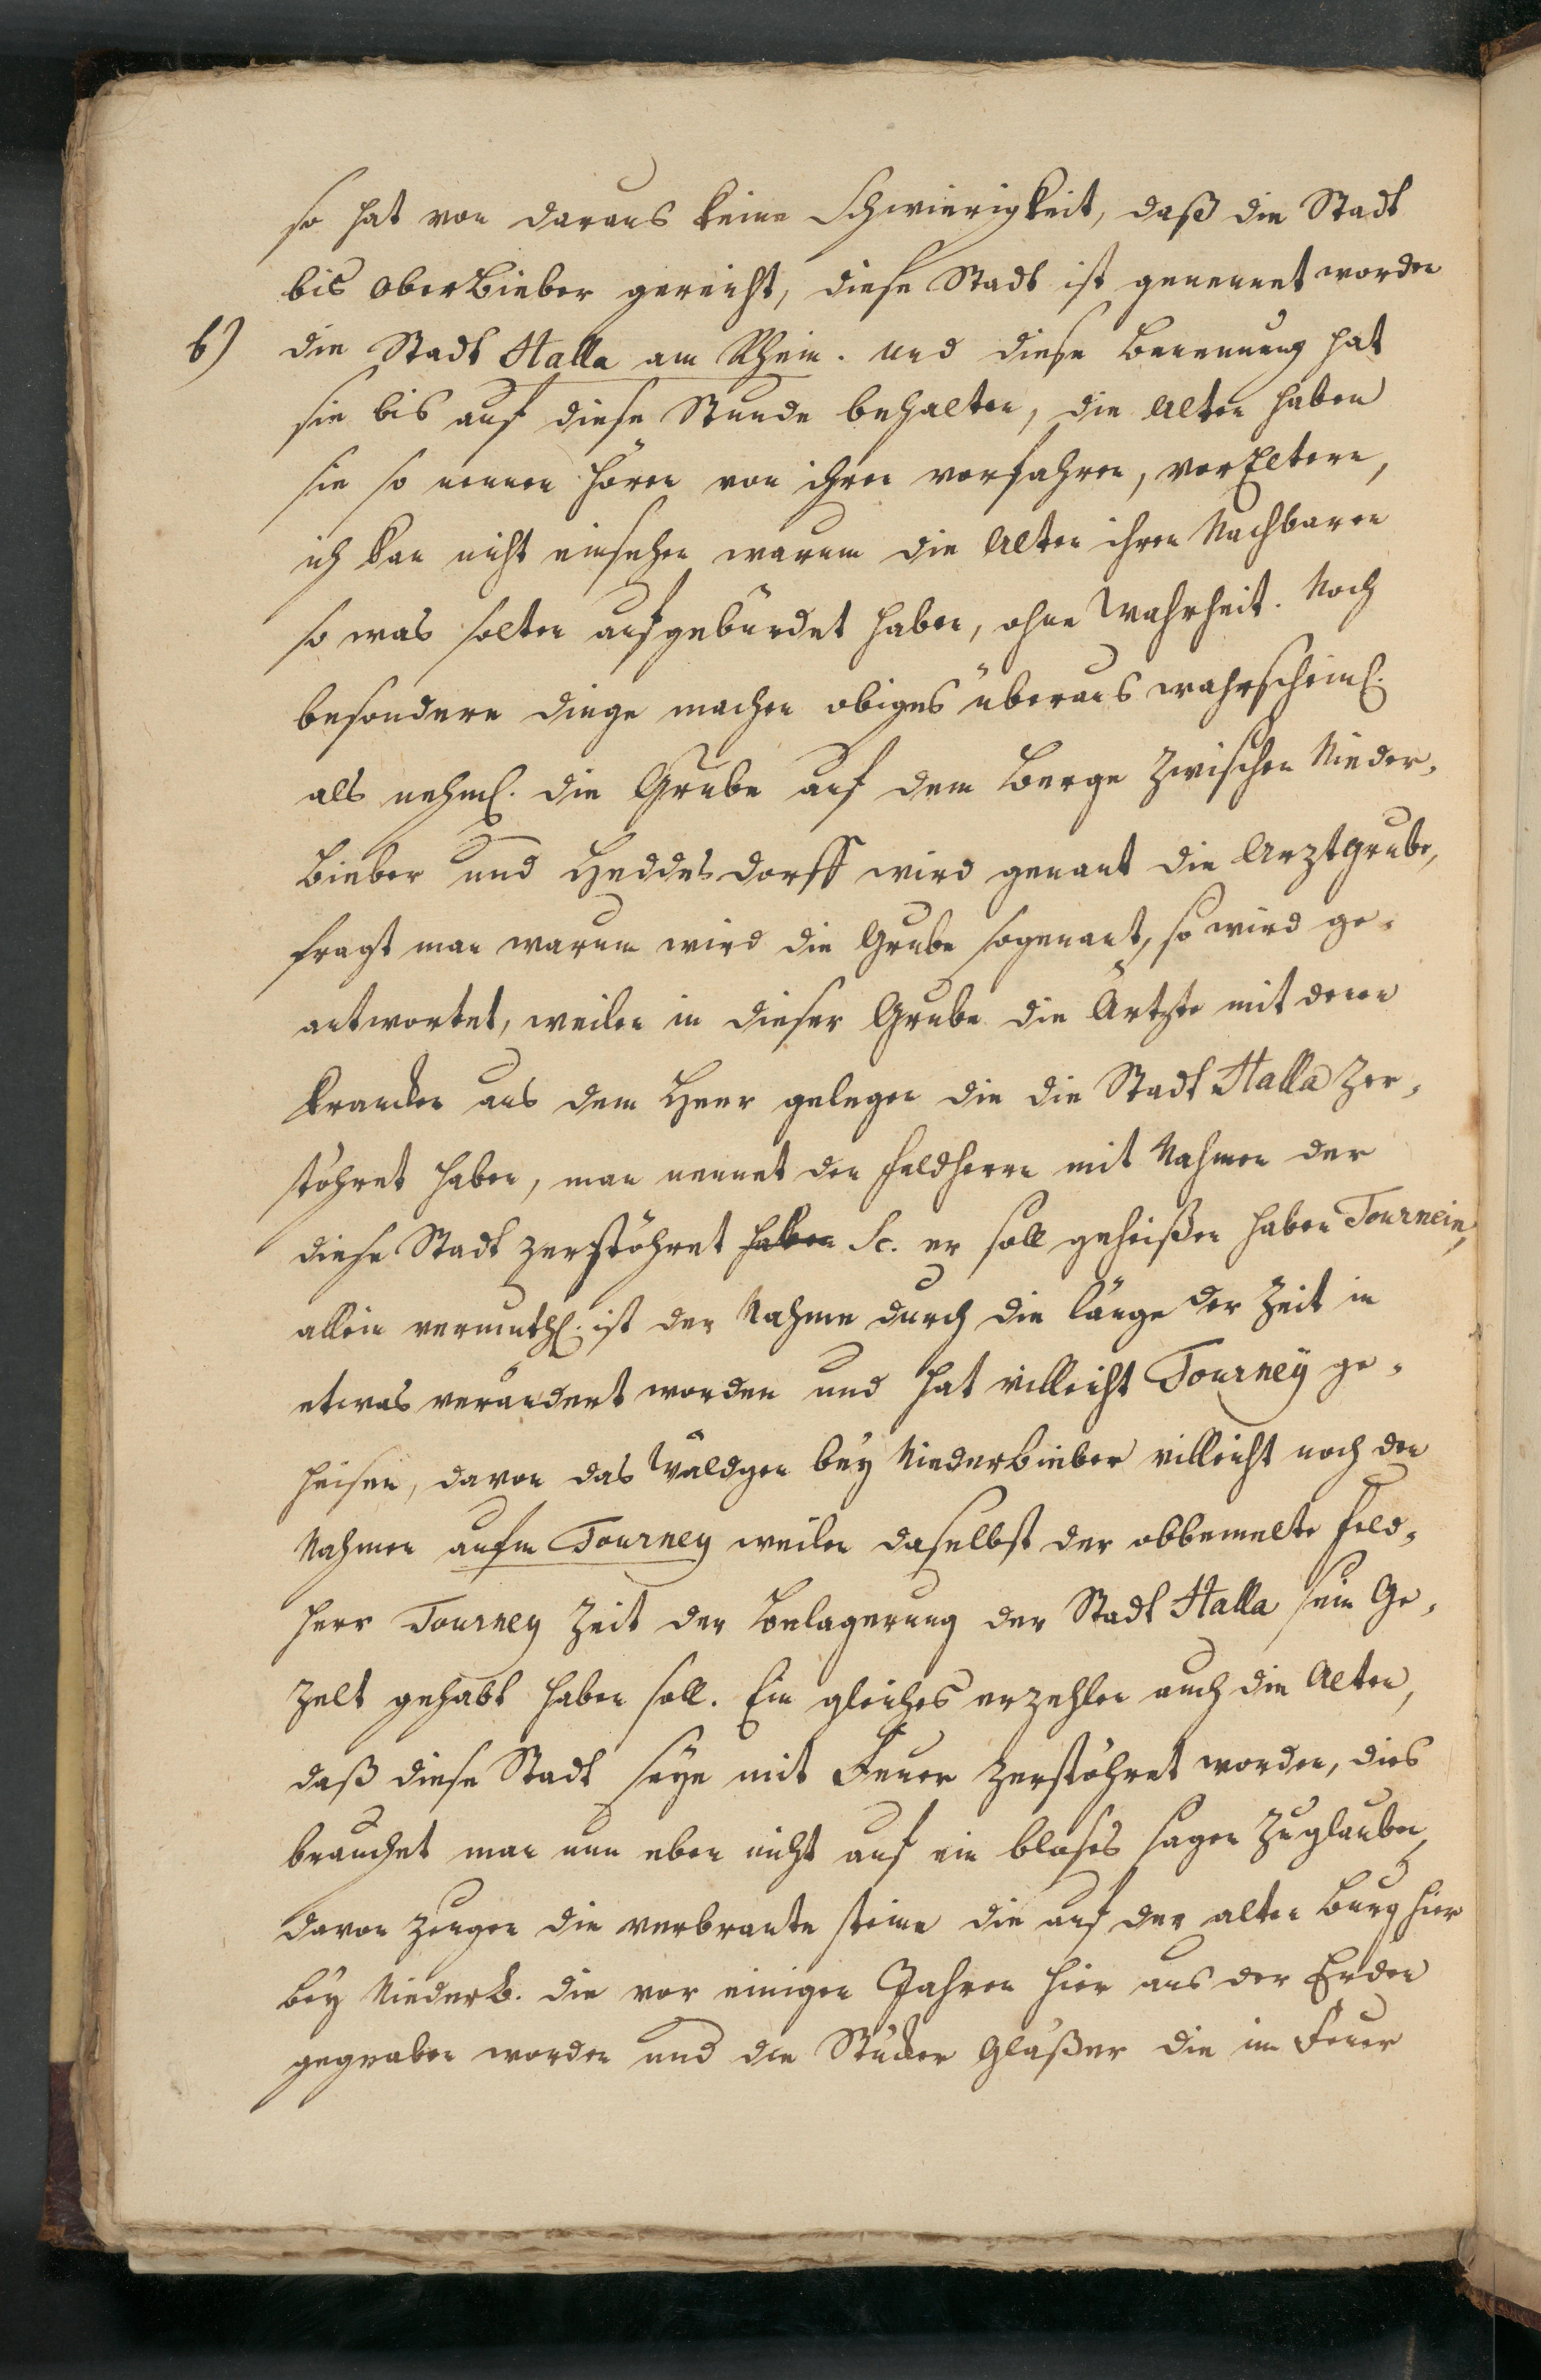 so hat von daraus keine Schwierigkeit, daß die Stadt
bis OberBieber gereicht, diese Stadt ist genennet worden
6) die Stadt Halla am Rhein. und diese Benennung hat
sie bis auf diese Stunde behalten, die Alten haben
sie so nennen hören von ihren vorfahren, vorEltern,
ich kan nicht einsehen warum die Alten ihren Nachbaren
so was solten aufgebürdet haben, ohne Wahrheit. Noch
besondere dinge machen obiges überaus wahrscheinl.
als nehml. die Grube auf dem Berge zwischen Nieder-
Bieber und Heddesdorff wird genant die Arztgrube,
fragt man warum wird die Grube sogenant, so wird ge-
antwortet, weilen in dieser Grube die Ärtzte mit denen
krancken aus dem Heer gelegen die die Stadt Halla zer-
stöhret haben, man nennet den feldherrn mit Nahmen der
diese Stadt zerstöhret haben Sc. er soll geheißen haben Tournein,
allein vermuthl. ist der Nahme durch die länge der Zeit in
etwas verändert worden und hat villeicht Tourneÿ ge-
heisen, davon das Wäldgen beÿ Niederbieber villeicht noch den
Nahmen aufm Tourney weilen daselbst der obbemelte feld-
herr Tourney Zeit der Belagerung der Stadt Halla sein Ge-
zelt gehabt haben soll. Ein gleiches erzehlen auch die Alten,
daß diese Stadt seÿe mit Feuer zerstöhret worden, dies
brauchet man nun eben nicht auf ein bloses sagen zuglauben,
davon zeugen die verbrante steine die auf der alten Burg hier
beÿ NiederB. die vor einigen Jahren hier aus der Erden
gegraben worden und die Stücker Gläßer die im Feuer